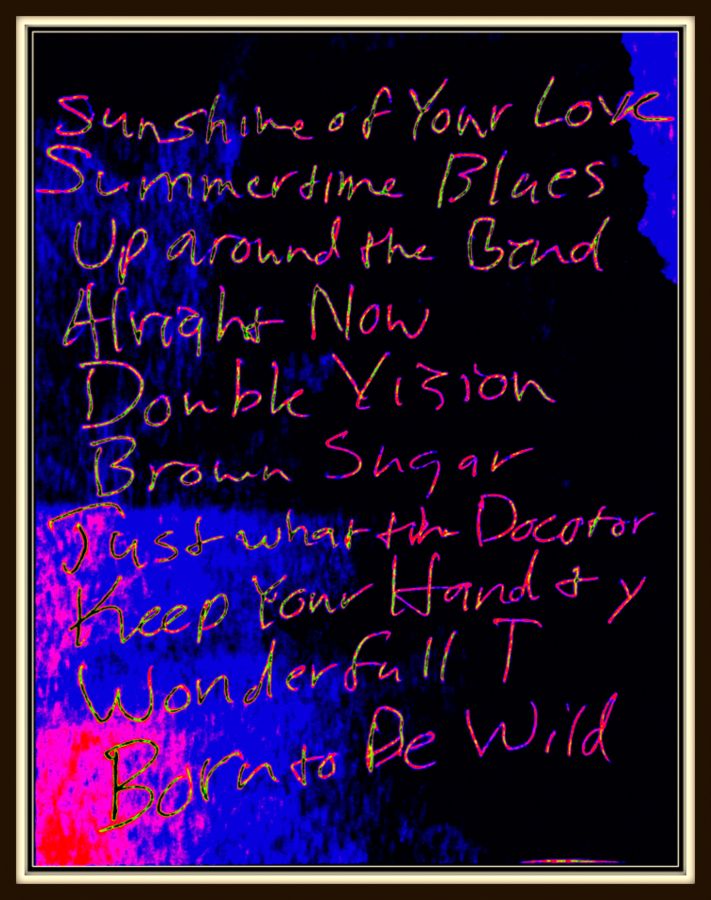 Sunshine of Your Love
Summertime Blues
Up around the Bend
Alright Now
Double Vision
Brown Sugar
Just what the Docotor
Keep Your Hand & y
Wonderfull T
Born to Be Wild